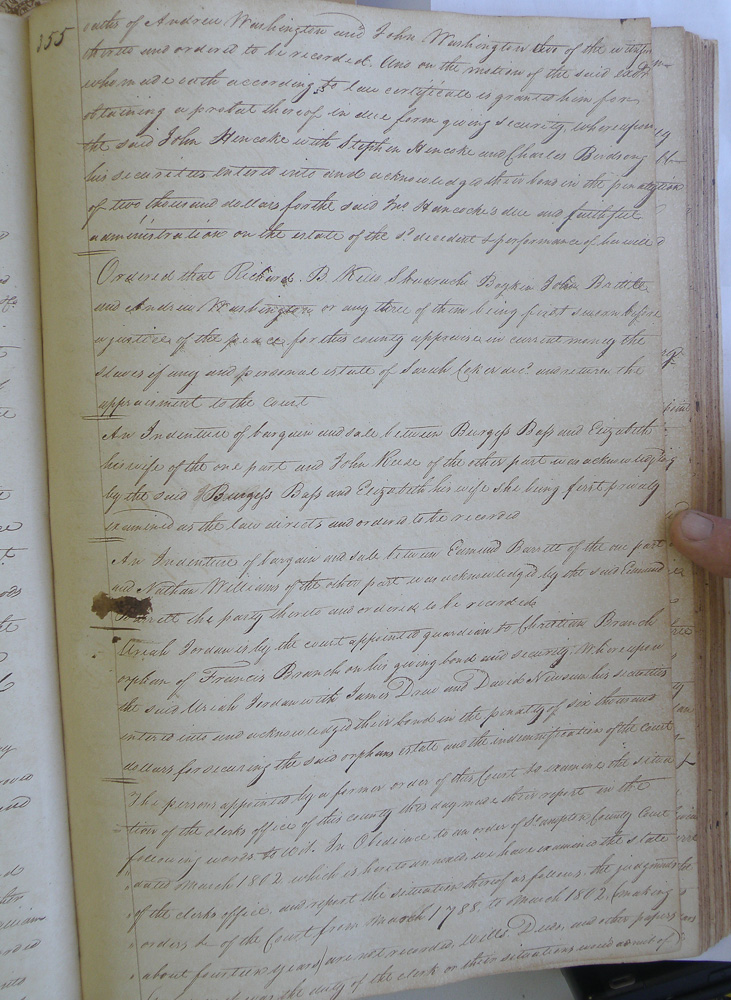 155
oaths of Andrew Washington and John Washington two of the witnesses
thereto and ordered to be recorded. And on the motion of the said
who made oath according to law certificate is granted him for
obtaining a probat thereof in due form giving security, whereupon
the said John Hancoke with Stephen Hancoke and Charles Birdsong
his securities entered into and acknowledged their bond in the penalty
of two thousand dollars for the said Jno. Hancocke's due and faithful
administration on the estate of the sd. decedent & performance of his will
Ordered that Richard. B Kello Boykin John Battle
and Andrew Washington or any three of them being first sworn before
a justice of the peace for this county appraise in current money the
slaves if any and personal estate of Sarah Coker decd. and return the
appraisement to the court
An Indenture of bargain and sale between Burgess Bass and Elizabeth
his wife of the one part and John Keese of the other part was acknowledged
by the said Burgess Bass and Elizabeth his wife she being first privaly
examined as the law directs and ordered to be recorded
An Indenture of bargain and sale between Edmund Barrett of the one part
and Nathan Williams of the other part was acknowledged by the said Edmund
Barrett the party thereto and ordered to be recorded
Uriah Jordan is by the court appointed guardian to Christian Branch
orphan of Francis Branch on his giving bond and security; Whereupon
the said Uriah Jordan with James Drew and David Newsum his securities
entered into and acknowledged their bond in the penalty of six thousand
dollars for securing the said orphans estate and the indemnification of the court
The persons appointed by a former order of this Court to examine the situa
tion of the clerks office of this county this day made their report in the
following words to wit. In Obedience to an order of Southampton County Court
dated March 1802 which is hereto annexed we have examined the state
of the clerks office, and report the situation thereof as follows, the judgments
orders & of the Court from March 1788 to March 1802 (making
about fourteen years) are not recorded Wills, Deeds, and other papers
was the duty of the clerk